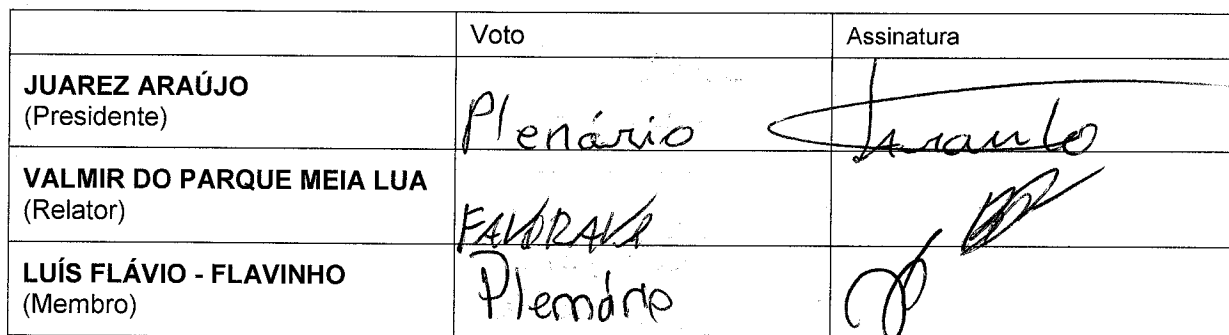 Voto Assinatura
JUAREZ ARAÚJO
(Presidente)
Plenário
VALMIR DO PARQUE MEIA LUA
(Relator)
LUÍS FLÁVIO - FLAVINHO
(Membro)
Plenário